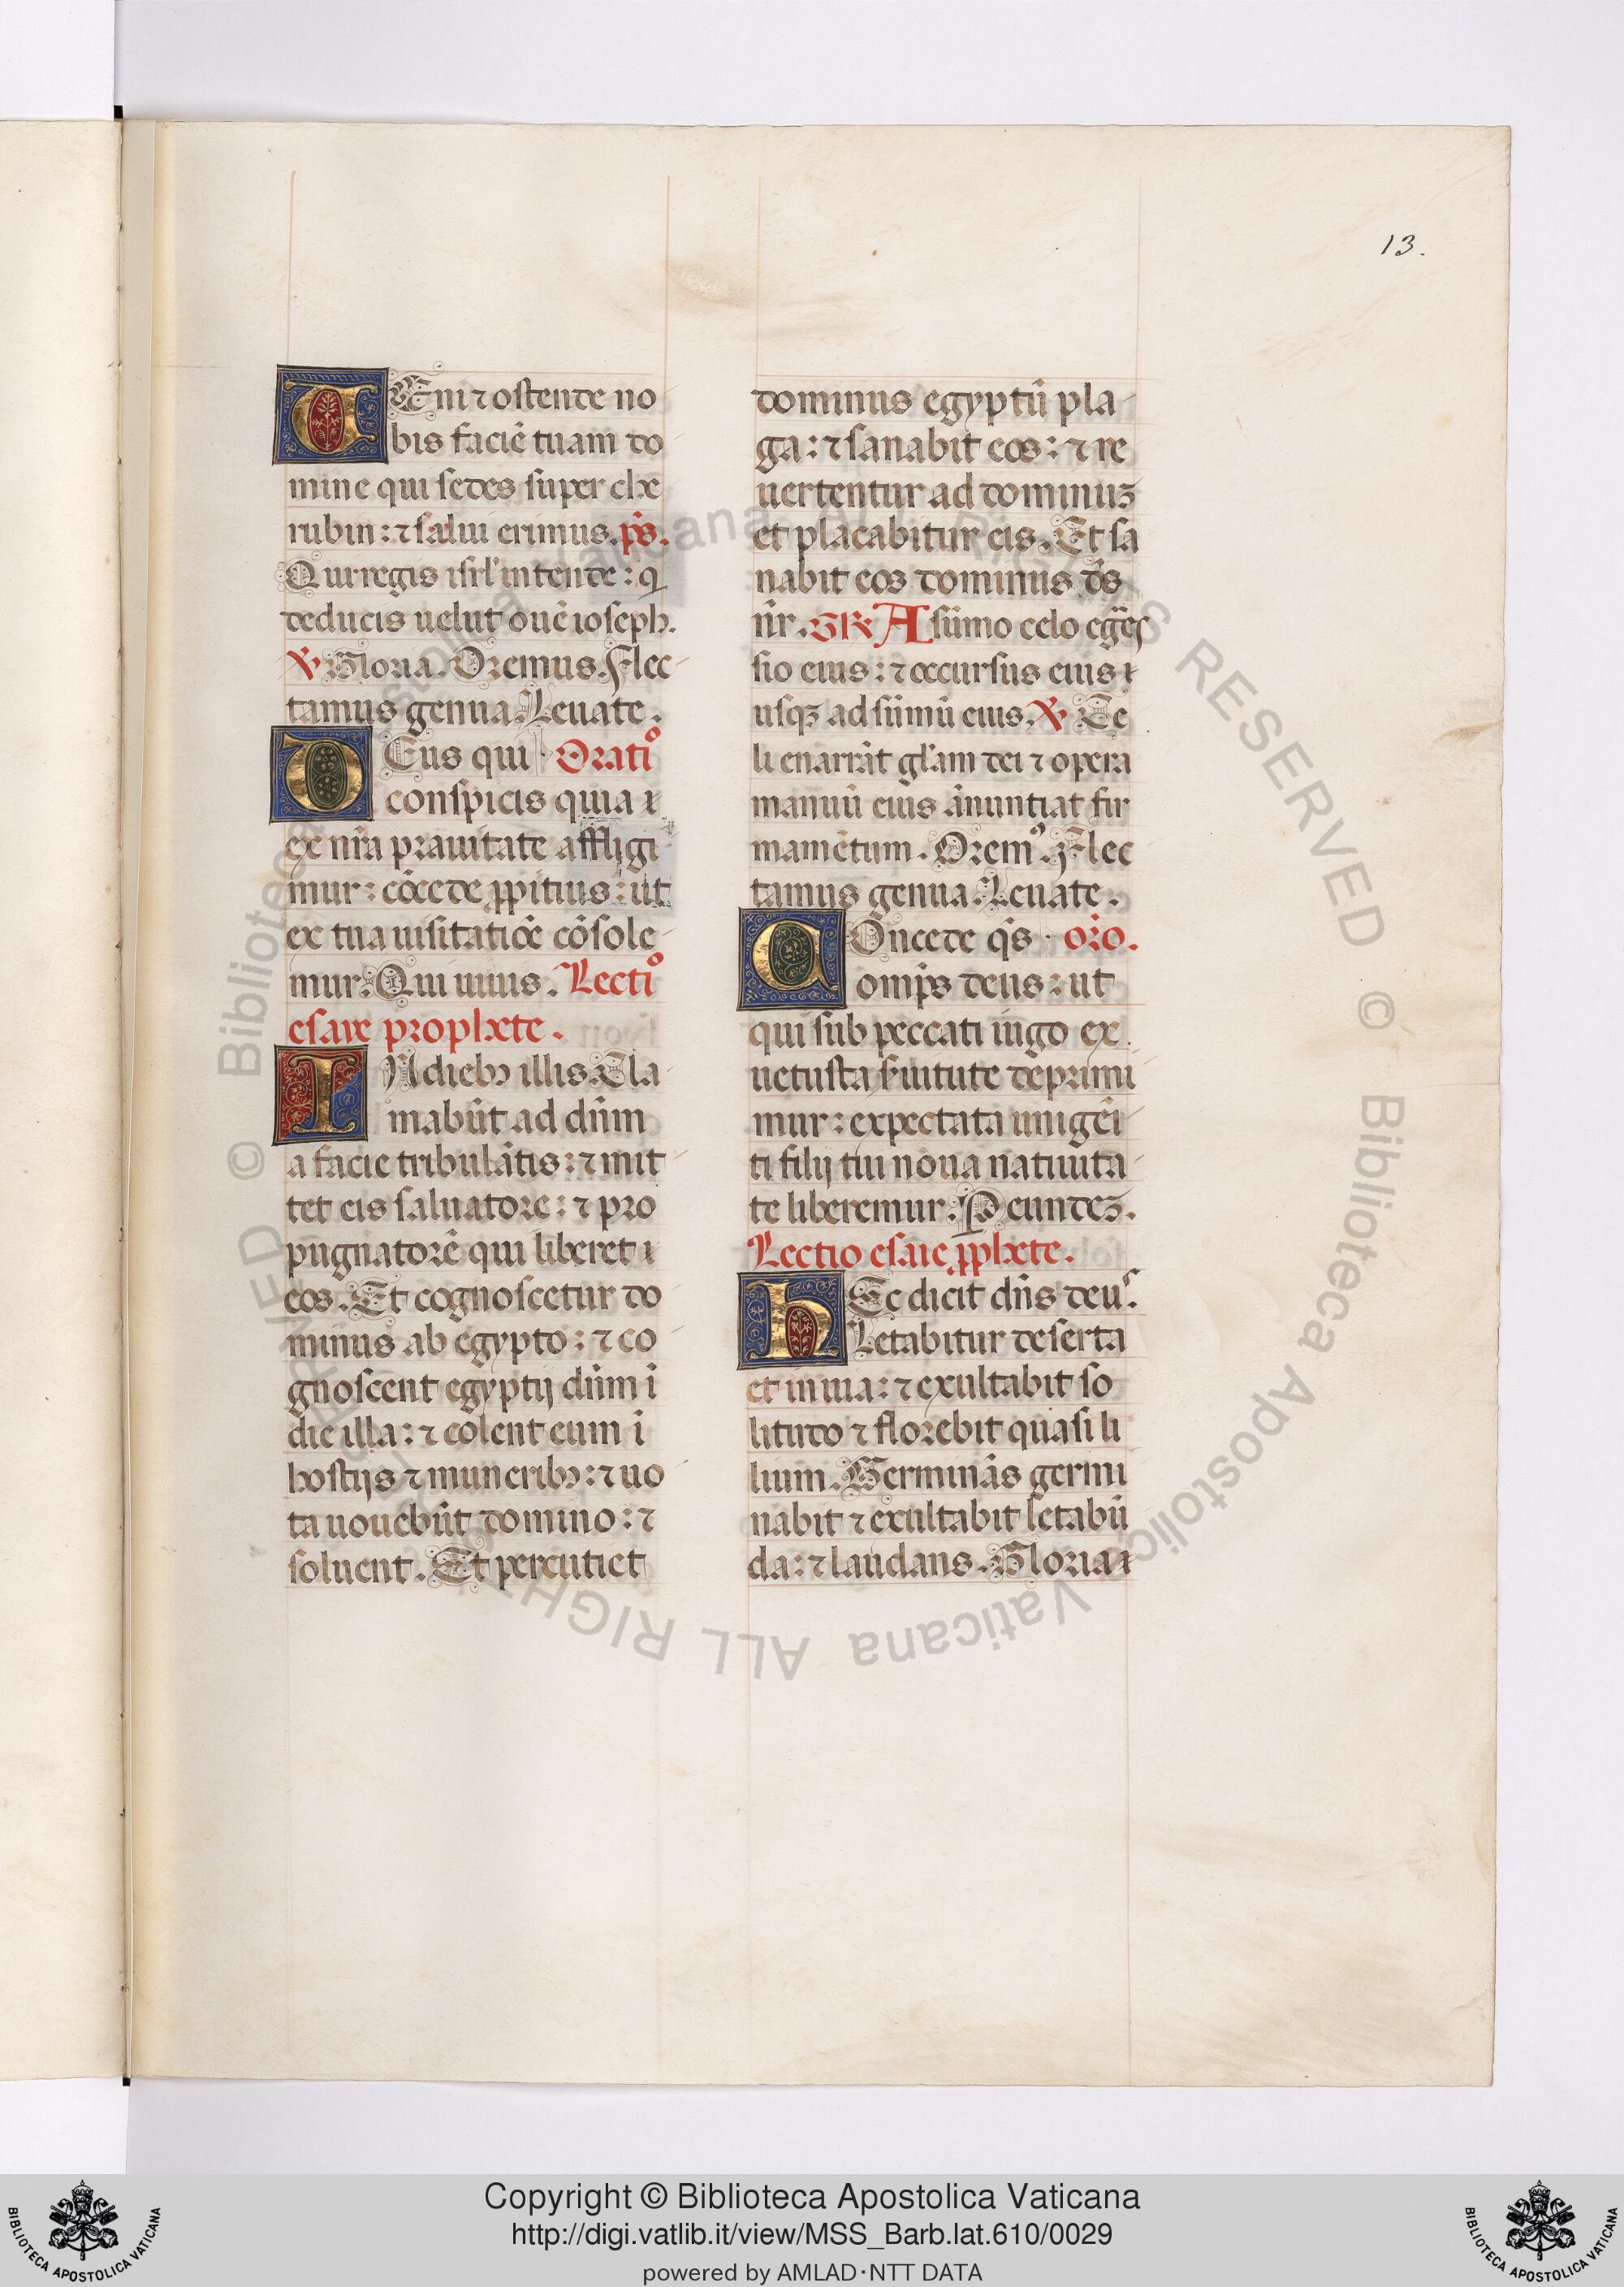 13.
VEni ⁊ ostende no
bis faciē tuam do
mine qui sedes super che
rubin: ⁊ salui erimus. p̄s.
Qui regis isrl' intende: q
deducis uelut ouē ioseph.
℣ Gloria. Oremus. Flec
tamus genua. Leuate.
DEus qui Oratiº
conspicis quia
ex nr̄a prauitate affligi
mur: cōcede ꝓpitius: ut
ex tua uisitatiōe cōsole
mur. Qui uiuis. Lectiº
esaie prophete.
IN dieb₉ illis. Cla
mabūt ad dn̄m
a facie tribulātis: ⁊ mit
tet eis saluatore: ⁊ pro
pugnatorē qui liberet
eos. Et cognoscetur do
minus ab egypto: ⁊ co
gnoscent egyptij dn̄m ī
die illa: ⁊ colent eum ī
hostijs ⁊ munerib₉: ⁊ uo
ta uouebūt domino: ⁊
soluent. Et percutiet
dominus egyptū pla
ga: ⁊ sanabit eos: ⁊ re
uertentur ad dominuꝫ
et placabitur eis. Et sa
nabit eos dominus d̄s
nr̄. GR A sūmo celo egr̄es
sio eius: ⁊ occursus eius
usqꝫ ad sūmū eius. ℣ Ce
li enarrāt gl'am dei ⁊ opera
manuū eius ānuntiat fir
mamētum. Orem⁹. Flec
tamus genua. Leuate.
COncede q̄s oro.
omp̄s deus: ut
qui sub peccati iugo ex
uetusta s̄uitute deprimi
mur: expectata unigēi
ti filij tui noua natiuita
te liberemur. Per eundeꝫ.
Lectio esaie ꝓphete.
HEc dicit dn̄s deus.
Letabitur deserta
et inuia: ⁊ exultabit so
litudo ⁊ florebit quasi li
lium. Germināns germi
nabit ⁊ exultabit letabū
da: ⁊ laudans. Gloria
© Biblioteca Apostolica Vaticana ALL RIGHTS RESERVED © Biblioteca Apostolica Vaticana ALL RIGHTS RESERVED
Copyright © Biblioteca Apostolica Vaticana
http://digi.vatlib.it/view/MSS_Barb.lat.610/0029
powered by AMLAD·NTT DATA
BIBLIOTECA APOSTOLICA VATICANA
BIBLIOTECA APOSTOLICA VATICANA